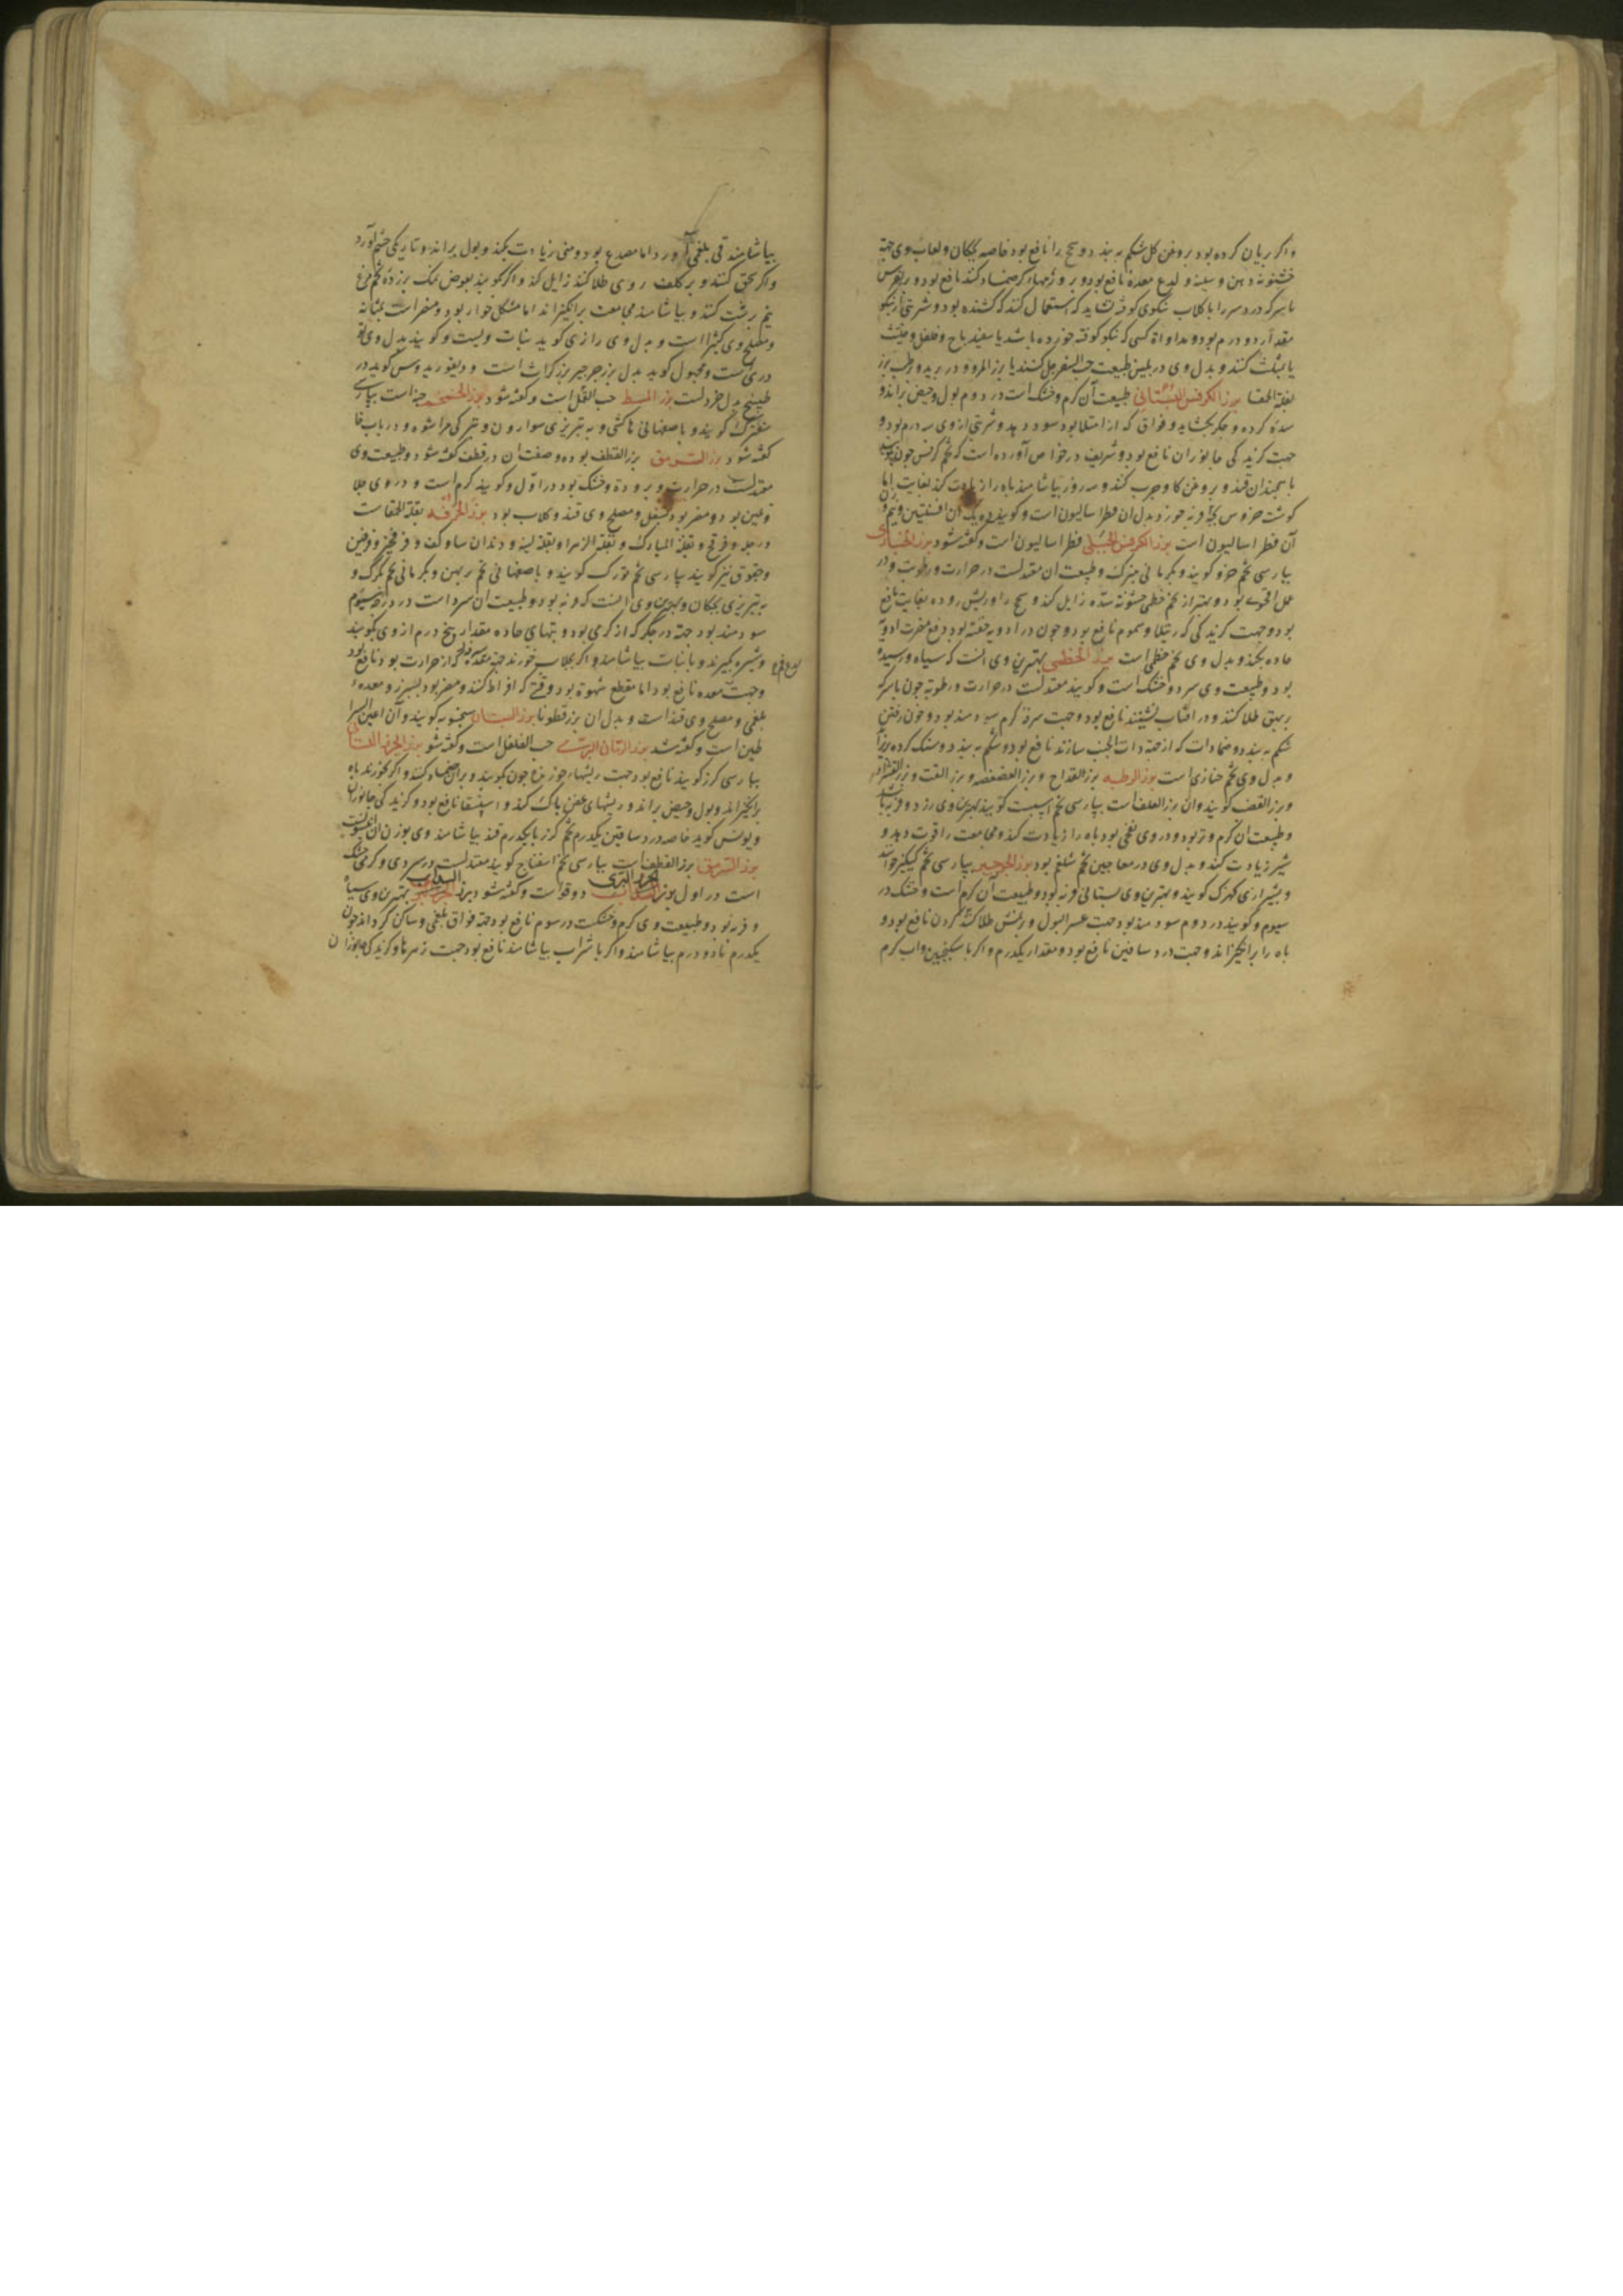 واکر بریان کرده بود بروغن کل شکم به بندد و سحج را نافع بود خاصه بچکان و لعاب وی جهة
خشونة دهن و سینه و لدع معده نافع بود و بر ورمها کرم ضماد کنند نافع بود و بر نقرس
با سرکه درد سر را با کلاب نیکوی کوفته نشاید که استعمال کنند که کشنده بود و شربتی از نیکو
مقدار دو درم بود و مداواة کسی که نیکو کوفته خورده باشد یا سفیدباج و فلفل و حلتیت
یا بشبت کنند و بدل وی در تلیین طبیعت حب السفرجل کنند یا بزر المرو و در تبرید و رطب بزر
بقلة الحمقا بزر الکرفس البستانی طبیعت آن کرم و خشک است در دوم بول و حیض براند و
سده کرده و جکر بکشاید و فواق که از امتلا بود سود دهد و شربتی از وی سه درم بود و
جهت کزیدکی جانوران نافع بود و شریف در خواص آورده است که تخم کرفس چون بکوبند
با همچندان قند و بروغن کاو چرب کنند و سه روز بیاشامند باه را زیادت کند بغایت اما
کوشت خروس بچه فربه خورد و بدل ان فطراسالیون است و کویند ده یک ان افسنتین و نیم وزن
آن فطراسالیون است بزر الکرفس الجبلی فطراسالیون است و کفته شود بزر الخبازی
بپارسی تخم خرو کویند و بکرمانی خبزک و طبیعت ان معتدلست در حرارت و رطوبت و در
عمل اقوی بود و بهتر از تخم خطمی خشونة سده زایل کند و سحج را و ریش روده بغایت نافع
بود و جهت کزیدکی که رتیلا و سموم نافع بود و چون در ادویه حقنه بود دفع مضرت ادویه
حاده بکند و بدل وی تخم خطمی است بزر الخطمی بهترین وی انست که سیاه و رسیده
بود و طبیعت وی سرد و خشک است و کویند معتدلست در حرارت و رطوبة چون با سرکه
بر بهق طلا کنند و در افتاب نشینند نافع بود و جهت سرفه کرم سودمند بود و خون رفتن
شکم به بندد و ضمادات که از جهة ذات الجنب سازند نافع بود و شکم به بندد و سنک کرده بریزاند
و بدل وی تخم خبازی است بزر الرطبه بزر القداح و بزر الفصفصه و بزر القت و بزر
و بزر القضب کویند و ان بزر العلف است بپارسی تخم اسپست کویند بهترین وی زرد و فربه باشد
و طبیعت ان کرم و تر بود و در وی نفخی بود باه را زیادت کند و مجامعت را قوت دهد و
شیر زیادت کند و بدل وی در معاجین تخم شلغم بود بزر الجرجیر بپارسی تخم کیکیز خوانند
و بشیرازی کهزک کویند و بهترین وی بستانی فربه بود و طبیعت آن کرم است و خشک در
سیوم و کویند در دوم سودمند بود جهت عسر البول و برنمش طلا کنند کردن نافع بود و
باه را برانکیزاند و جهت درد ساقین نافع بود و مقدار یکدرم و اکر با سکنجبین و اب کرم
بیاشامند قی بلغمی آورد اما مصدع بود و منی زیادت بکند و بول براند و تاریکی چشم آورد
واکر سحق کنند و بر کلف روی طلا کنند زایل کند و اکر کویند بعوض نمک بر زرده تخم مرغ
نیم برشت کنند و بیاشامند مجامعت برانکیزاند اما مشکل خوار بود و مضر است بمثانه
و مصلح وی کثیرا است و بدل وی رازی کوید نبات ویست و کویند بدل وی تو
دری است و مجهول کوید بدل بزر جرجیر بزر کراث است و دیسقوریدوس کوید در
طبیخ بدل خردلست بزر المسط حب القلقل است و کفته شود بزر الخمخم خبه است بپارسی
شفترک کویند و باصفهانی خاکشی و به تبریزی سوارون و بترکی مراشوه و در باب خا
کفته شود بزر السرمق بزر القطف بوده و صفت ان در قطف کفته شود و طبیعت وی
معتدلست در حرارت و برودة و خشک بود در اول و کویند کرم است و در وی جلا
و تلین بود و مضر بود بسفل و مصلح وی قند و کلاب بود بزر الخرفه بقلة الحمقا است
و رجله و فرفخ و بقلة المبارک و بقلة الزهرا و بقلة لینه و دندان ساو کف و فرفخیز و فرفین
وحقوق نیز کویند بپارسی تخم تورک کویند و باصفهانی تخم پرپهن و بکرمانی تخم کلرک و
به تبریزی بچکان و بهترین وی انست که فربه بود و طبیعت ان سرد است در درجه سیوم
سودمند بود جهة درد جکر که از کرمی بود و تبهای حاده مقدار پنج درم از وی بکوبند
و شیره بکیرند و با نبات بیاشامند و اکر بجلاب خورند جهة معده سرفه که از حرارت بود نافع بود
وجهت معده نافع بود اما مقطع شهوة بود وقتی که افراط کنند و مضر بود بسپرز و معده
بلغمی و مصلح وی قند است و بدل ان بزر قطونا بزر البستان سیجنبوه کویند و آن اعین السراطین است و کفته شد بزر الرمان البری حب القلقل است و کفته شود بزر الجزر البستانی
بپارسی کزر کویند نافع بود جهت ریشهاء خورنده چون بکوبند و بران ضماد کنند و اکر بخورند باه
برانکیزاند و بول و حیض براند و ریشهای عفن پاک کند و استسقا نافع بود و کزیدکی جانوران
و یونس کوید خاصه درد ساقین یکدرم تخم کزر با یکدرم قند بیاشامند وی بوزن ان انیسونست
بزر السرمق بزر القطف است بپارسی تخم اسفناج کویند معتدلست در سردی و کرمی خشک
است در اول بزر الجزر البری دوقو است و کفته شود بزر السداب بهترین وی سیاه
و فربه بود و طبیعت وی کرم و خشکست در سوم نافع بود جهة فواق بلغمی و ساکن کرداند چون
یکدرم تا دو درم بیاشامند و اکر با شراب بیاشامند نافع بود جهت زهرها و کزیدکی جانوران